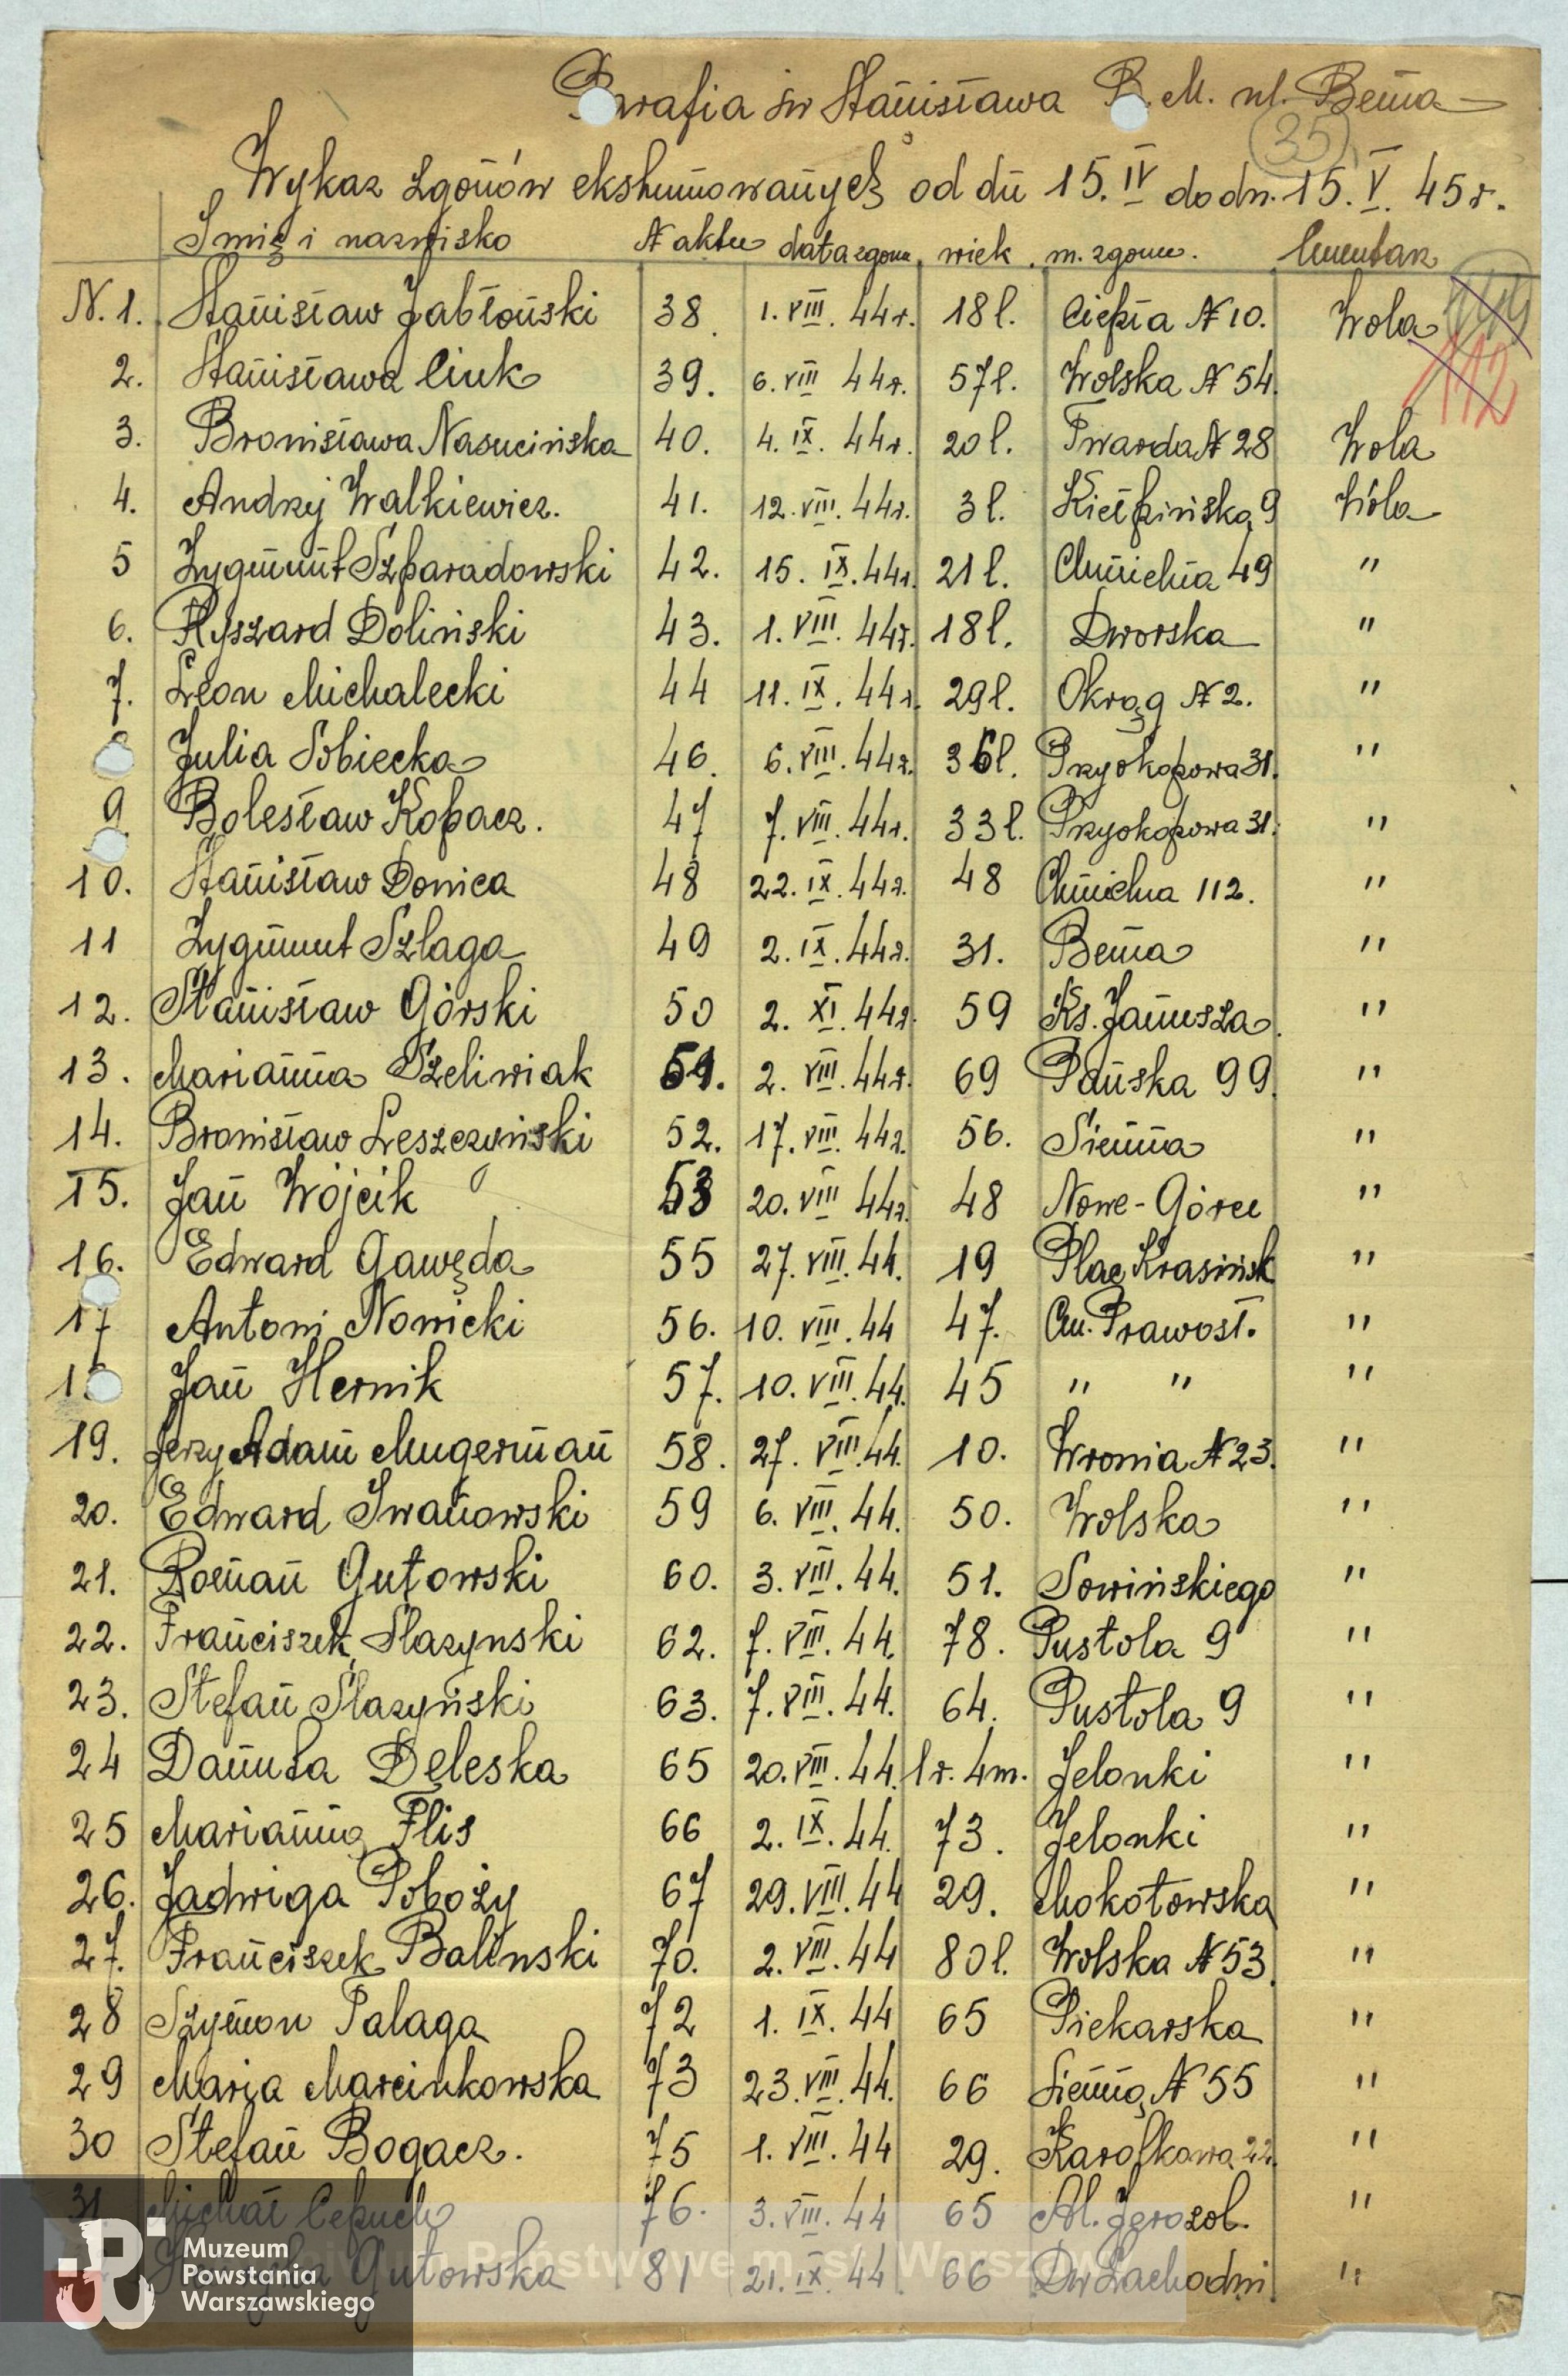 Parafia św Stanisława B. M. ul. Bema
35
Wykaz zgonów ekshumowanych od dn 15. IV do dn. 15. V. 45 r.
Imię i nazwisko N aktu data zgonu wiek m. zgonu. Cmentarz
N. 1. Stanisław Jabłoński 38. 1. VIII. 44r. 18 l. Ciepła N 10. Wola
112
2. Stanisława Ciuk 39. 6. VIII 44r. 57 l. Wolska N 54.
3. Bronisława Nasucińska 40. 4. IX. 44r. 20 l. Twarda N 28 Wola
4. Andrzj Walkiewicz. 41. 12. VIII. 44r. 3 l. Kiełpińska 9 Wola
5 Zygmunt Szparadowski 42. 15. IX. 44r. 21 l. Chmielna 49 "
6. Ryszard Doliński 43. 1. VIII. 44r. 18 l. Dworska "
7. Leon Michalecki 44 11. IX. 44r. 29 l. Okrąg N 2. "
Julia Sobiecka 46. 6. VIII. 44r. 36 l. Przyokopowa 31. "
9 Bolesław Kopacz. 47 7. VIII. 44r. 33 l. Przyokopowa 31. "
10. Stanisław Donica 48 22. IX. 44r. 48 Chmielna 112. "
11 Zygmunt Szlaga 49 2. IX. 44r. 31. Bema "
12. Stanisław Górski 50 2. XI. 44r. 59 Ks. Janusza. "
13. Marianna Szeliwiak 51. 2. VIII. 44r. 69 Pańska 99. "
14. Bronisław Leszczyński 52. 17. VIII. 44r. 56. Sienna "
15. Jan Wójcik 53 20. VIII 44r. 48 Nowe-Górce "
16. Edward Gawęda 55 27. VIII. 44. 19 Plac Krasińsk "
17 Antoni Nowicki 56. 10. VIII. 44 47. Cm. Prawosł. "
1 Jan Hernik 57. 10. VIII. 44. 45 " " "
19. Jerzy Adam Mugerman 58. 27. VIII. 44. 10. Wronia N 23. "
20. Edward Iwanowski 59 6. VIII. 44. 50. Wolska "
21. Roman Gutowski 60. 3. VIII. 44. 51. Sowińskiego "
22. Franciszek Slazynski 62. 7. VIII. 44. 78. Pustola 9 "
23. Stefan Slazyński 63. 7. VIII. 44. 64. Pustola 9 "
24 Danuta Dęleska 65 20. VIII. 44. 1 r. 4 m. Jelonki "
25 Marianna Flis 66 2. IX. 44. 73. Jelonki "
26. Jadwiga Poboży 67 29. VIII. 44 29. Mokotowska "
27. Franciszek Balinski 70. 2. VIII. 44 80 l. Wolska N 53. "
28 Szymon Palaga 72 1. IX. 44 65 Piekarska "
29 Marja Marcinkowska 73 23. VIII. 44. 66 Sienna N 55 "
30 Stefan Bogacz. 75 1. VIII. 44 29. Karolkowa 22. "
31 Michał Cepuch 76. 3. VIII. 44 65 Al. Jerozol. "
Gutowska 81 21. IX. 44 66 Dw Zachodni "
Muzeum
Powstania
Warszawskiego